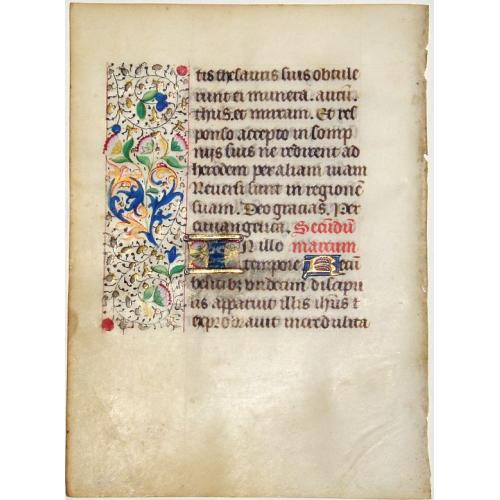 tis thesauris suis obtule
runt ei munera. aurū.
thus. et mirram. Et res
ponso accepto in somp
nijs suis ne redirent ad
herodem per aliam viam
Reversi sunt in regionem
suam. Deo gracias. Per
euuangelica. Secūdū
IN illo marcum
tempore Recū
bentibz undecim discipu
lis apparuit illis ihus t
exprobrauit incredulita